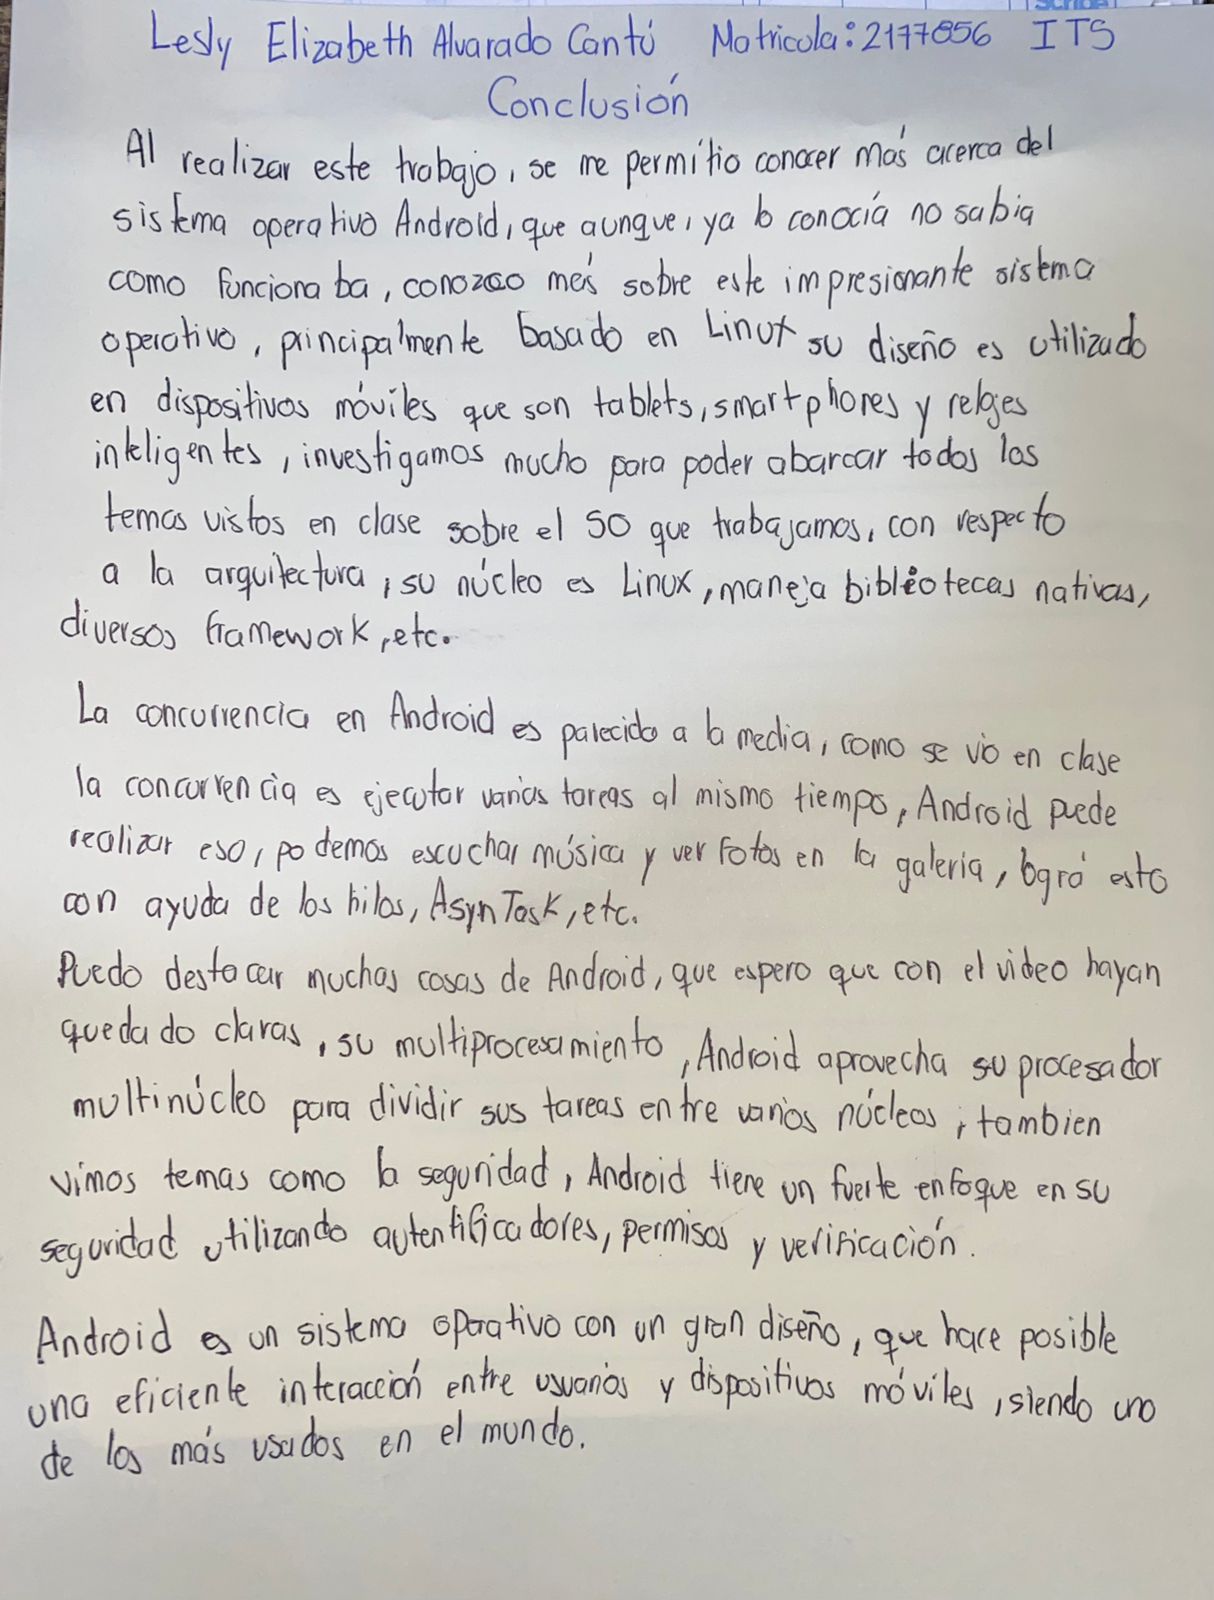 Lesly Elizabeth Alvarado Cantú Matricula: 2177856 ITS
Conclusión
Al realizar este trabajo, se me permitio conocer más acerca del
sistema operativo Android, que aunque, ya lo conocía no sabia
como funcionaba, conozco más sobre este impresionante sistema
operativo, principalmente basado en Linux su diseño es utilizado
en dispositivos móviles que son tablets, smartphones y relojes
inteligentes, investigamos mucho para poder abarcar todos los
temas vistos en clase sobre el SO que trabajamos, con respecto
a la arquitectura, su núcleo es Linux, maneja bibliotecas nativas,
diversos framework, etc.
La concurrencia en Android es parecido a la media, como se vio en clase
la concurrencia es ejecutar varias tareas al mismo tiempo, Android puede
realizar eso, podemos escuchar música y ver fotos en la galería, logra esto
con ayuda de los hilos, AsynTask, etc.
Puedo destacar muchas cosas de Android, que espero que con el video hayan
quedado claras, su multiprocesamiento, Android aprovecha su procesador
multinúcleo para dividir sus tareas entre varios núcleos, tambien
vimos temas como la seguridad, Android tiene un fuerte enfoque en su
seguridad utilizando autentificadores, permisos y verificación.
Android es un sistema operativo con un gran diseño, que hace posible
una eficiente interacción entre usuarios y dispositivos móviles, siendo uno
de los más usados en el mundo.